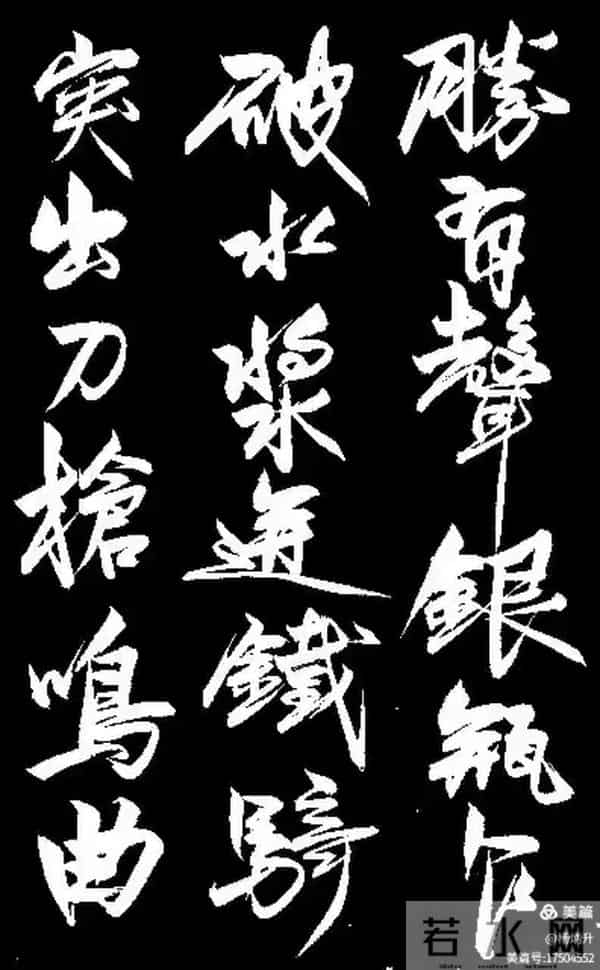 勝有聲銀瓶乍
破水漿迸鐵騎
突出刀槍鳴曲
美篇
若水网
美篇号:17504552